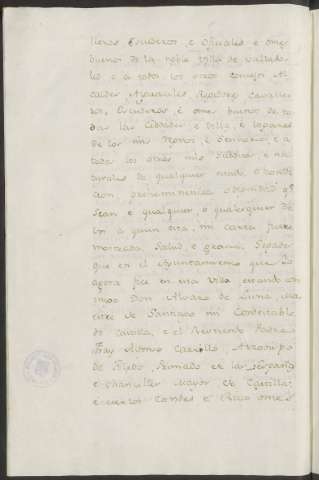 lleros Escuderos, e ofiziales e omes
buenos de la noble Villa de Vallado
lid e a todos los otros concejos Al
caldes Alguaciles, Regidores cavalle
ros, Escuderos, e omes buenos de to
das las Cibdades e Villas, e Logares
de los mis Reynos e Sennorios, e a
todos los otros mis subditos, e na
turales de qualquier estado, o condi
cion, preheminencia o dignidad que
sean e qualquier, o qualesquier de
vos a quien esta mi carta fuere
mostrada, Salud, e gracia. Sepades
que en el Ayuntamiento que Yo
agora fice en esta Villa estando con
migo Don Alvaro de Luna, Ma
estre de Santiago mi Condestable
de Castilla, e el Reverendo Padre
Fray Alonso Carrillo, Arzobispo
de Toledo, Primado de las Españas
e Chanciller Mayor de Castilla,
e ciertos Condes e Ricos omes